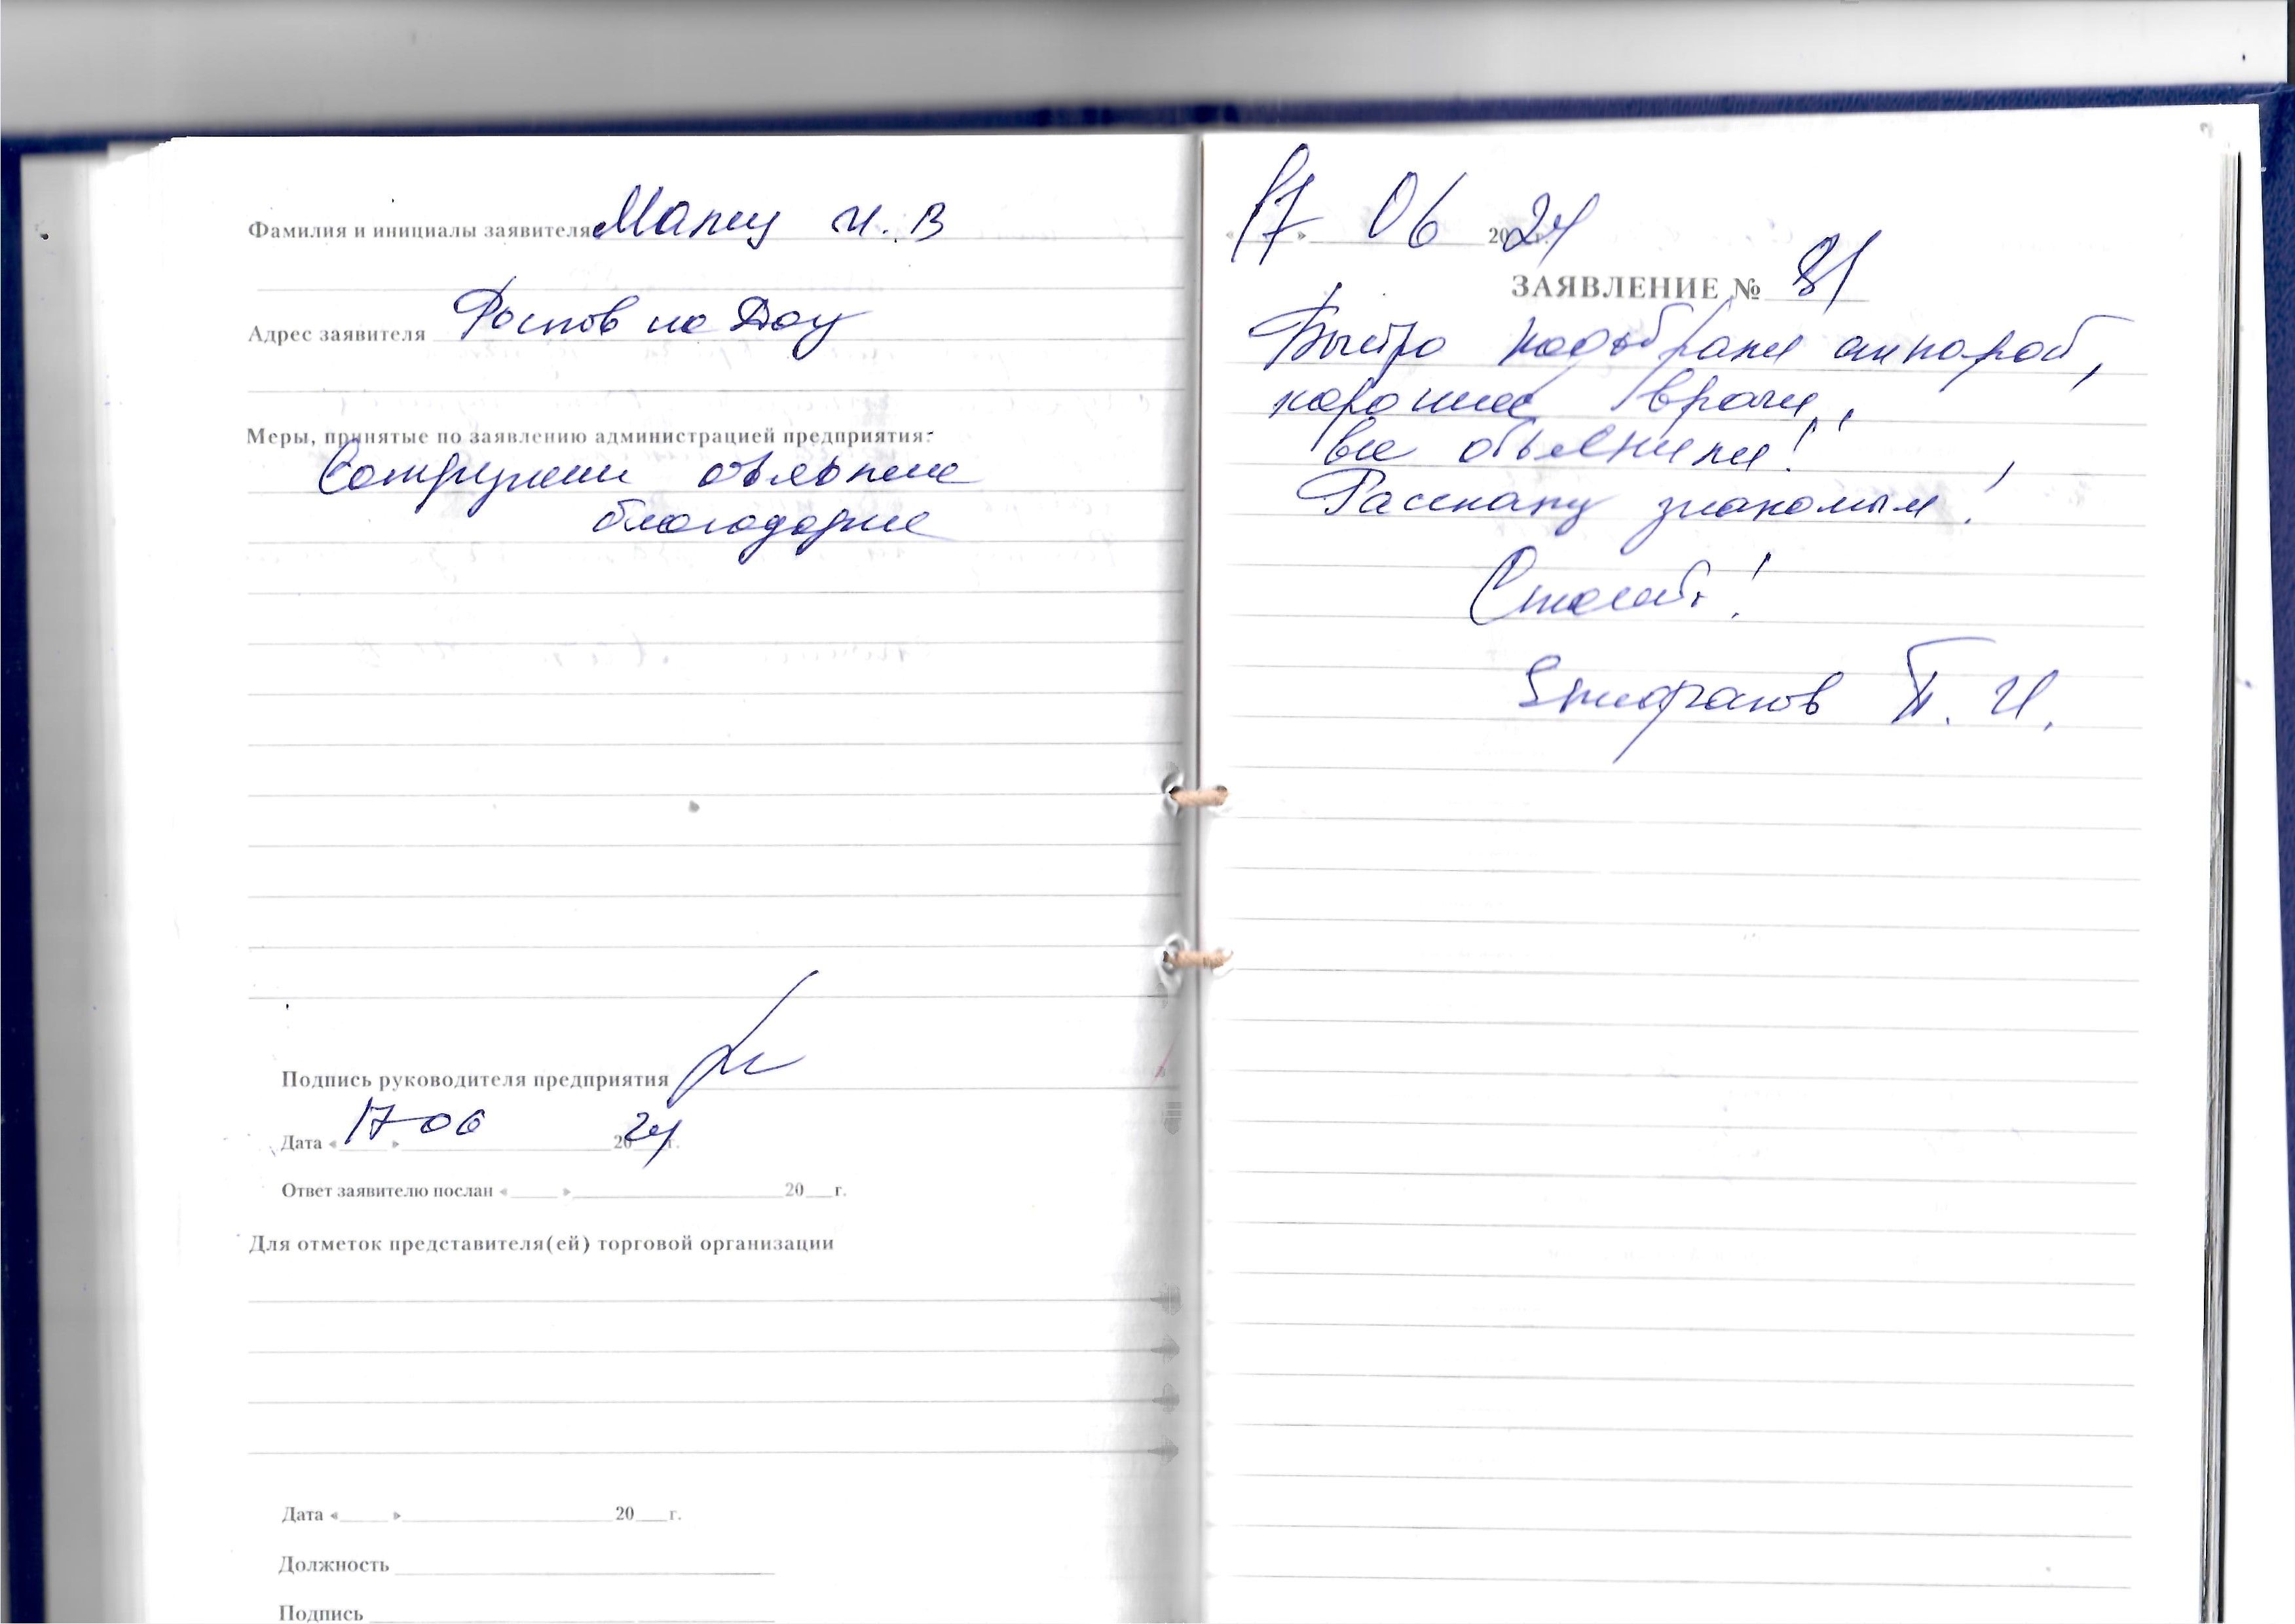 Фамилия и инициалы заявителя Мапиц И. В
Адрес заявителя Ростов на Дону
Меры, принятые по заявлению администрацией предприятия:
Сотруднии объявлена
благодарне
Подпись руководителя предприятия
Дата « 17 » 06 2024 г.
Ответ заявителю послан « » 20 г.
Для отметок представителя(ей) торговой организации
Дата « » 20 г.
Должность
Подпись
17 06 2024 г.
ЗАЯВЛЕНИЕ № 81
Быстро подобрали аппарат,
хорошие врачи,
все объяснили!
Расскажу знакомым!
Спасибо!
П. И.